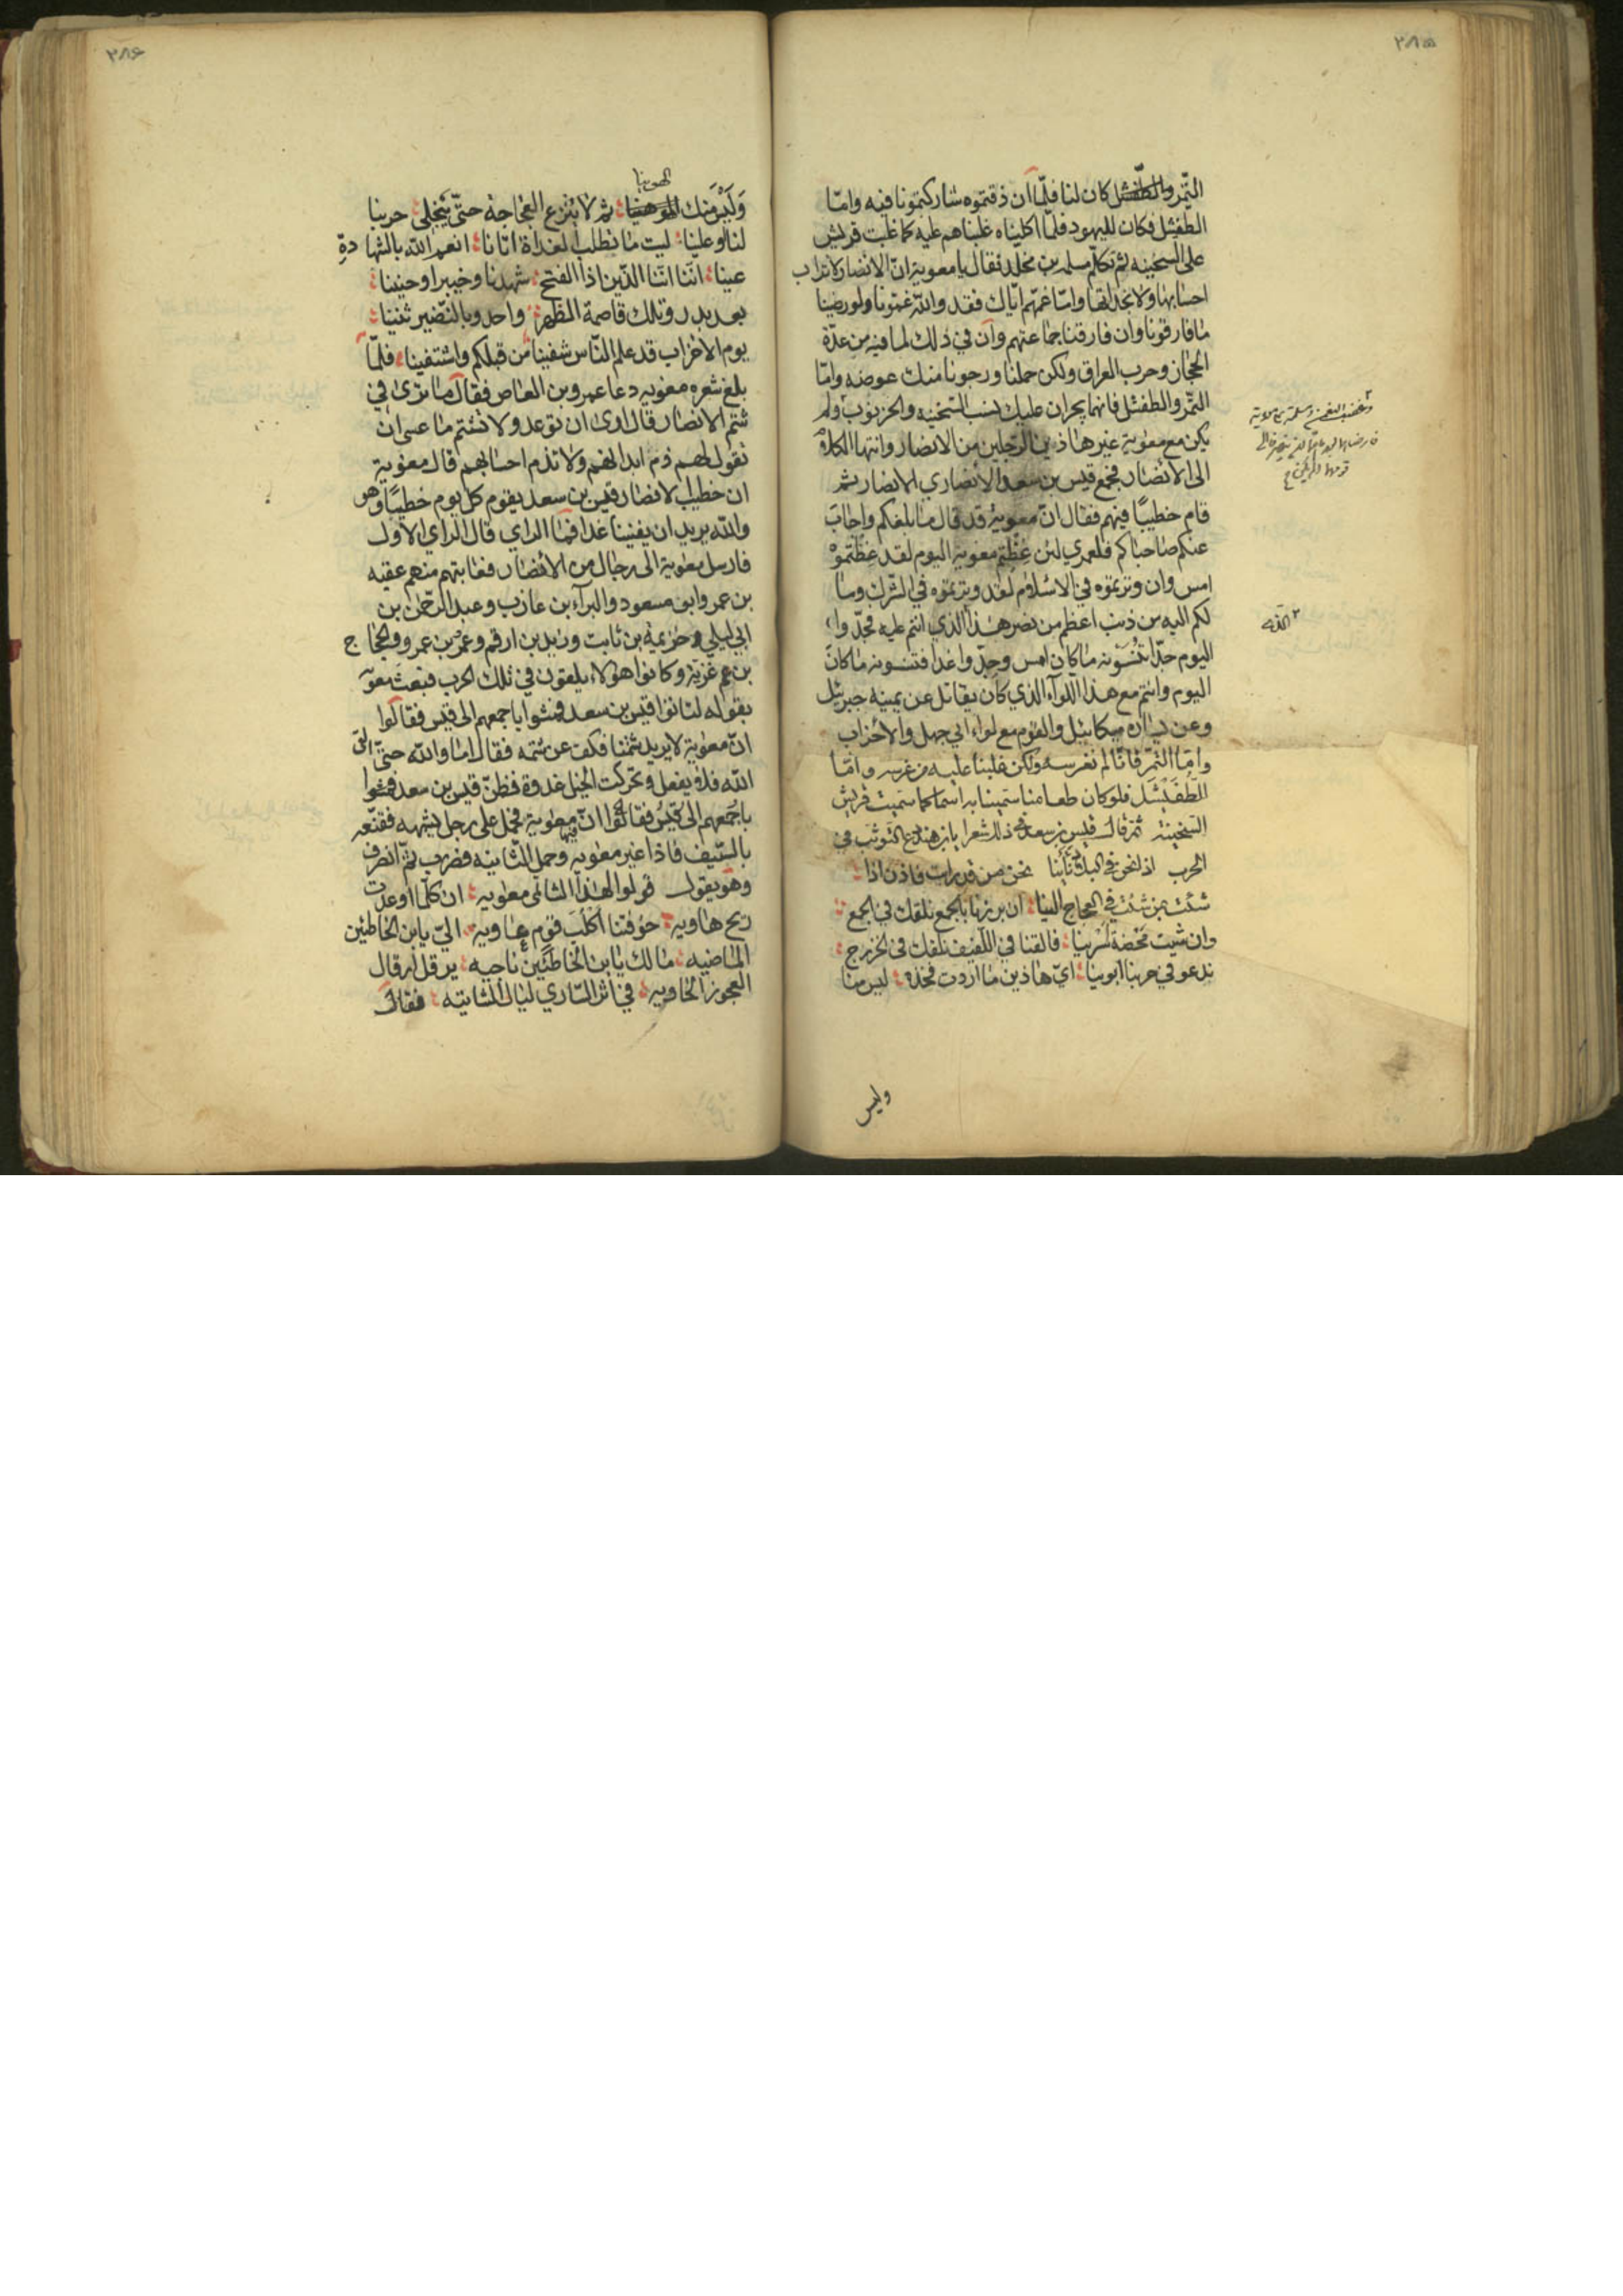 ٢٨٥
التّمر والطّفشل كان لنا فلمّا ان ذقتموه شاركتمونا فيه وامّا
الطفشل فكان لليهود فلمّا اكلناه غلبناهم عليه كما غلبت قريش
على السخينه ثم تكلّم مسلمه بن مخلد فقال يا معوية انّ الانصار لا تعاب
احسابها ولا نجداتها وامّا غمّهم ايّاك فقد والله غمّونا ولو رضينا
ما فارقونا وان فارقنا جماعتهم وان في ذلك لما فيه من عدّة
الحجاز وحرب العراق ولكن حملنا ورجونا منك عوضه وامّا
التّمر والطفشل فانهما يجران عليك نسب السّخينه والخرنوب ولم
يكن مع معوية غير هاذين الرّجلين من الانصار وانتها الكلام
الى الانصار فجمع قيس بن سعد الأنصاري الانصار ثم
قام خطيبًا فيهم فقال انّ معوية قد قال ما بلغكم واجاب
عنكم صاحباكم فلعمري لئن غظتم معوية اليوم لقد غظتموه
امس وان وترتموه في الاسلام لقد وترتموه في الشّرك وما
لكم اليه من ذنب اعظم من نصر هذا الذي انتم عليه فجدّوا
اليوم جدّا تنسونه ما كان امس وجدّوا غدا فتنسونه ما كان
اليوم وانتم مع هذا اللوآء الذي كان يقاتل عن يمينه جبرئيل
وعن يساره ميكائيل والقوم مع لواء ابي جهل والأحزاب
وامّا التّمر فانّا لم نغرسه ولكن غلبنا عليه من غرسه وامّا
الطّفيشل فلو كان طعامنا سمينا به اسما كما سميت قريش
السّخينة ثم قال قيس بن سعد في ذلك شعرا يا بن هند دع التوثب في
الحرب اذا نحن في البلاد نأينا نحن من قد رايت فاذن اذا
شئت بمن شئت في العجاج الينا ان برزنا بالجمع نلقك في الجمع
وان شيت محضة اسرينا فالقنا في اللّفيف نلقك في الخزرج
ندعو في حربنا ابوينا ايّ هاذين ما اردت فخذه ليس منا
وليس
٢٨٦
الهوينا
وليس منك ثم لا ينزع العجاجة حتّى ينجلى حربنا
لنا او علينا ليت ما نطلب الغداة اتانا انعم الله بالشهادةِ
عينا انّنا انّنا الذّين اذا الفتح شهدنا وخيبرا وحنينا
بعد بدر وتلك قاصمة الظهر واحد وبالنّضير ثنينا
يوم الاحزاب قد علم النّاس شفينا من قبلكم واشتفينا فلمّا
بلغ شعره معوية دعا عمرو بن العاص فقال ما ترى في
شتم الانصار قال ارى ان توعد ولا تشتم ما عسى ان
تقول لهم ذم ابدانهم ولا تذم احسابهم قال معوية
ان خطيب الانصار قيس بن سعد يقوم كل يوم خطيبًا وهو
والله يريد ان يفنينا غدا فما الراي قال الراي الاول
فارسل معوية الى رجال من الأنصار فعاتبهم منهم عقبه
بن عمر وابو مسعود والبرآء بن عازب وعبد الرّحمن بن
ابي ليلي وخزيمة بن ثابت وزيد بن ارقم وعمر بن عمرو والحجّاج
بن عم غزية وكانوا هؤلاء يلقون في تلك الحرب فبعث معوية
بقوله لتاتوا قيس بن سعد فمشوا باجمعهم الى قيس فقالوا
انّ معوية لا يريد شتمنا فكف عن شتمه فقال اما والله حتى القى
الله فلا يفعل وتحركت الخيل غدوة فظنّ قيس بن سعد
باجمعهم الى قيس فقالوا انّ فيها معوية فحمل على رجل يشبهه فقنّعه
بالسّيف فاذا غير معوية وحمل الثّانية فضرب ثمّ انصرف
وهو يقول قولوا لهذا الشاتمى معوية ان كلّما اوعدت
ريح هاوية خوّفتنا اكلب قوم عاوية اليّ يا بن الخاطئين
الماضية مالك يا بن الخاطئين ناجيه يرقل ارقال
العجوز الخاوية في اثر السّاري ليال الشاتيه فقال